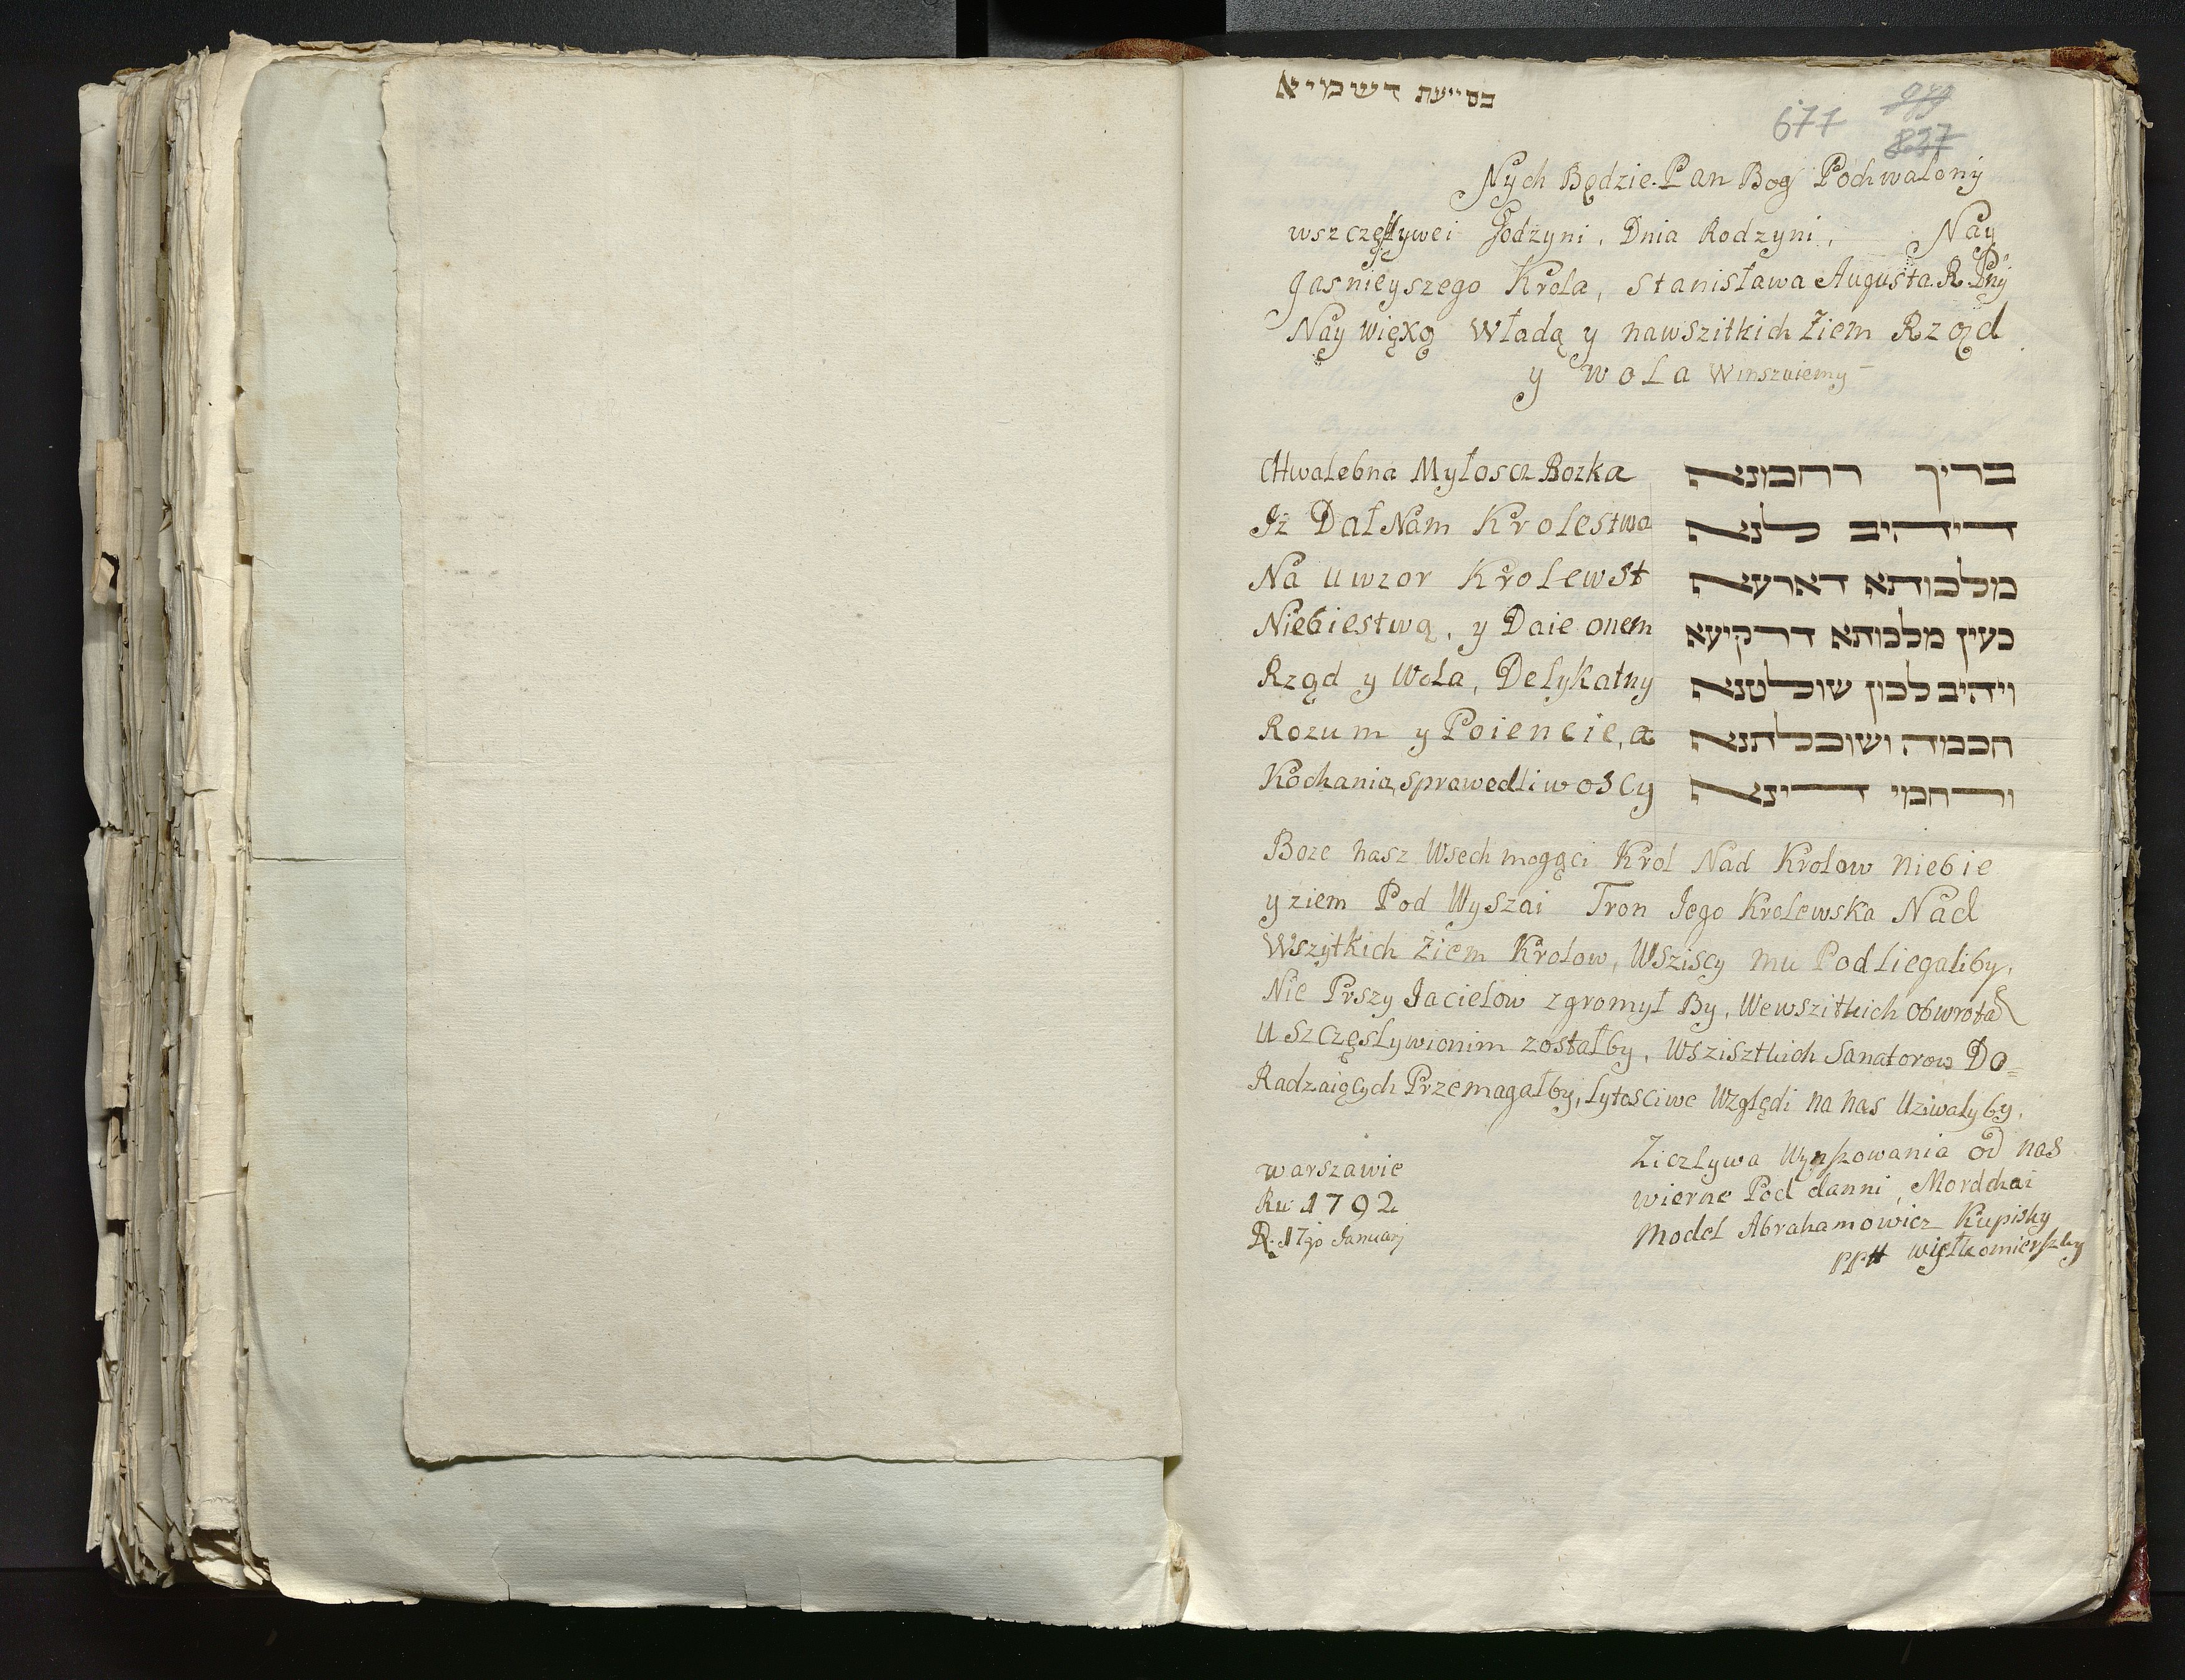 בסייעת דשמייא
677
837
Nych Będzie. Pan Bog Pochwalony
wszczęslywei Godzyni, Dnia Rodzyni, Nay
Jasnieyszego Krola, Stanisława Augusta. R.
Nay więxą Władą y nawszitkich Ziem Rząd
y wola Winszuiemy
CHwalebna Myłoscz Bozka
בריך רחמנא
Iż Dał Nam Krolestwa
דיהיב לנא
Na uwzor Krolewst
מלכותא דארעא
Niebiestwą, y Daie onem
כעין מלכותא דרקיעא
Rząd y Wola, Delykatny
ויהיב לכון שולטנא
Rozum y Poiencie, a
חכמה ושוכלתנא
Kochania, sprawedliwoscy
ורחמי דינא
Boze nasz Wsechmogąci Krol Nad Krolow niebie
y ziem Pod Wyszai Tron Jego Krolewska Nad
Wszytkich Ziem Krolow, Wsziscy mu Podliegaliby,
Nie Prszy Jacielow zgromył By, Wewszitkich Obwrota
uszczęslywionim zostałby, Wszisztkich Sanatorow Do=
Radzaiących Przemagałby, Lytosciwe Względi na nas Uziwalyby,
Ziczlywa Wynszowania od nas
wierne Pod danni, Mordchai
Model Abrahamowicz Kupisky
ppH wiełkomierszky
warszawie
Ru 1792
D. 17go Januarj